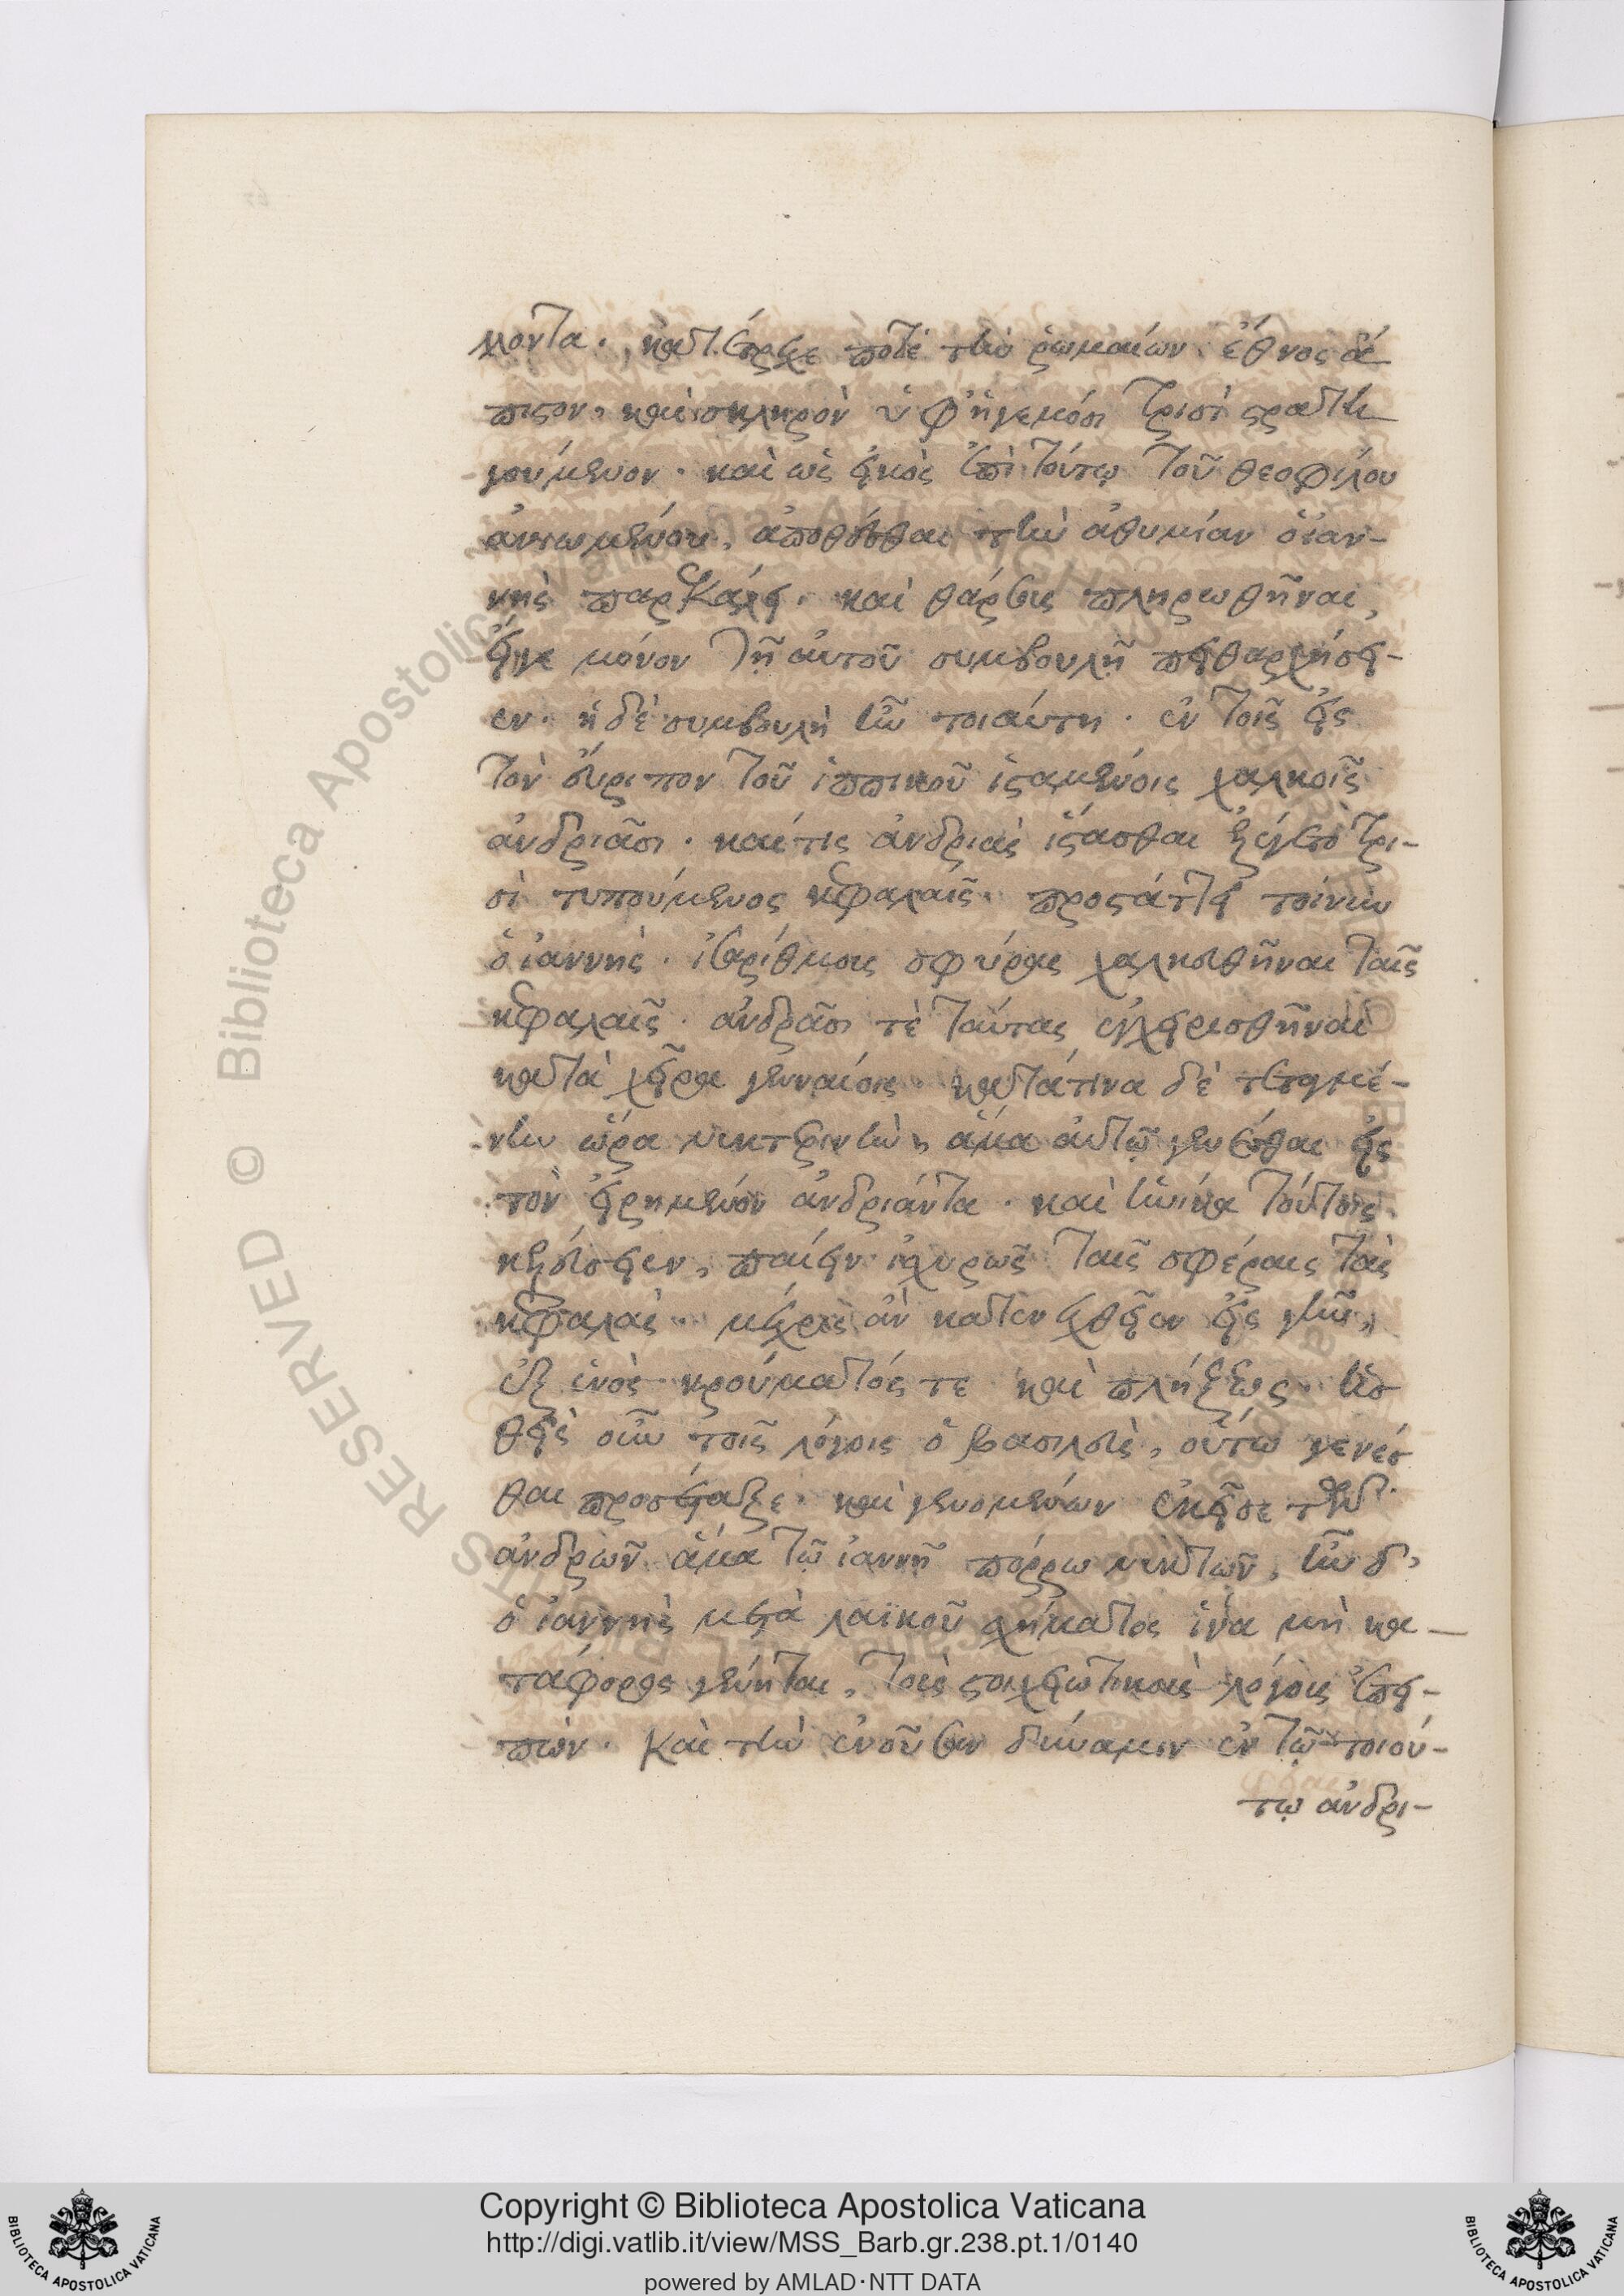 μοντα. κατέτρεχε ποτὲ τὴν ῥωμαίων ἔθνος ἄ
πιστον. καὶ σκληρὸν ὑφ' ἡγεμόσι τρισὶ στρατη
γούμενον. καὶ ὡς εἰκὸς ἐπὶ τούτῳ τοῦ θεοφίλου
ἀνιωμένου, ἀποθέσθαι τὴν ἀθυμίαν ὁ ἰαν-
νὴς παρεκάλει. καὶ θάρσους πληρωθῆναι,
εἴγε μόνον τῇ αὐτοῦ συμβουλῇ πειθαρχήσει-
εν. ἡ δὲ συμβουλὴ ἦν τοιαύτη. ἐν τοῖς εἰς
τὸν εὔριπον τοῦ ἱππικοῦ ἱσταμένοις χαλκοῖς
ἀνδριᾶσι. καί τις ἀνδριὰς ἵστασθαι ἐλέγετο τρι-
σὶ τυπούμενος κεφαλαῖς. προστάττει τοίνυν
ὁ ἰαννὴς. ἰσαρίθμους σφύρας χαλκευθῆναι ταῖς
κεφαλαῖς. ἀνδρᾶσι τὲ ταύτας ἐγχειρισθῆναι
κατὰ χεῖρα γενναίοις. κατάτινα δὲ τεταγμέ-
νην ὥρα νυκτερινὴν, ἅμα αὐτῷ γενέσθαι εἰς
τὸν εἰρημένον ἀνδριάντα. καὶ ἡνίκα τούτοις
κελεύσειεν, παίειν ἰσχυρῶς ταῖς σφέραις τὰς
κεφαλὰς. μέχρις ἂν κατενεχθεῖεν εἰς γῆν,
ἐξ ἑνὸς κρούματός τε καὶ πλήξεως. ἡσ
θεὶς οὖν τοῖς λόγοις ὁ βασιλεὺς, οὕτω γενέσ
θαι προσέταξε. καὶ γενομένων ἐκεῖσε τῶν
ἀνδρῶν ἅμα τῷ ἰαννῇ πόρρω νυκτῶν, ἦν δ'
ὁ ἰαννὴς μετὰ λαϊκοῦ σχήματος ἵνα μὴ κα-
τάφορος γένηται, τοὺς στοιχειωτικοὺς λόγους ἐπει-
πὼν. καὶ τὴν ἐνοῦσαν δύναμιν ἐν τῷ τοιού-
τῳ ἀνδρι-
Copyright © Biblioteca Apostolica Vaticana
http://digi.vatlib.it/view/MSS_Barb.gr.238.pt.1/0140
powered by AMLAD·NTT DATA